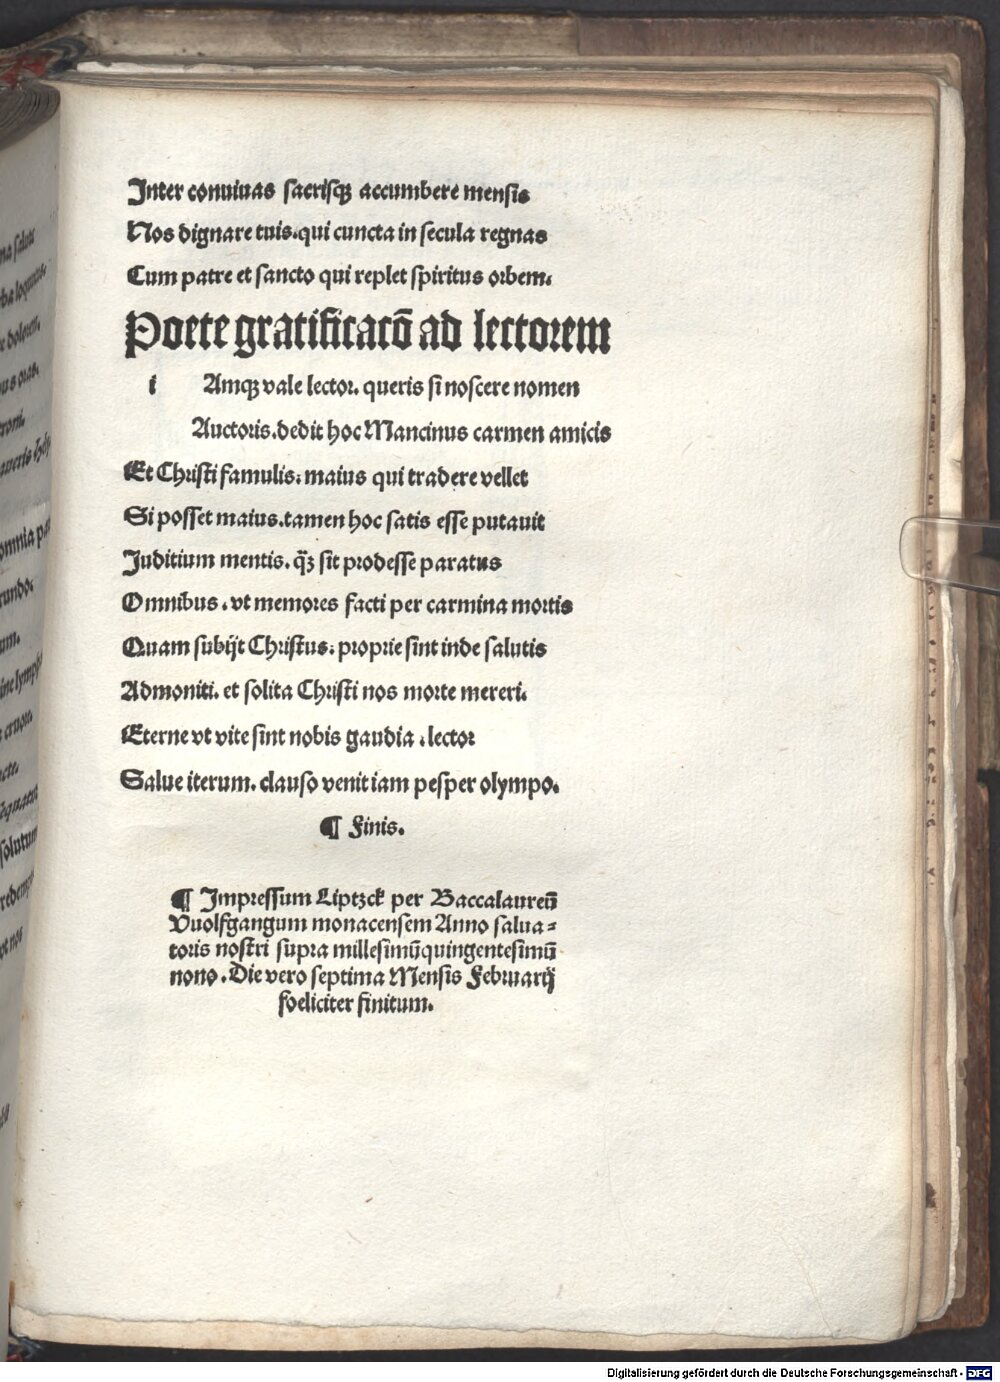 Inter conuiuas sacrisqꝫ accumbere mensis
Nos dignare tuis.qui cuncta in secula regnas
Cum patre et sancto qui replet spiritus orbem.
Poete gratificacō ad lectorem
i Amqꝫ vale lector. queris si noscere nomen
Auctoris.dedit hoc Mancinus carmen amicis
Et Christi famulis: maius qui tradere vellet
Si posset maius.tamen hoc satis esse putauit
Juditium mentis. qꝫ sit prodesse paratus
Omnibus. vt memores facti per carmina mortis
Quam subijt Christus: proprie sint inde salutis
Admoniti. et solita Christi nos morte mereri.
Eterne vt vite sint nobis gaudia. lector
Salue iterum. clauso venit iam pesper olympo.
¶ Finis.
¶ Impressum Liptzck per Baccalaureū
Vuolfgangum monacensem Anno salua⸗
toris nostri supra millesimūquingentesimū
nono. Die vero septima Mensis Februarij
foeliciter finitum.
Digitalisierung gefördert durch die Deutsche Forschungsgemeinschaft - DFG